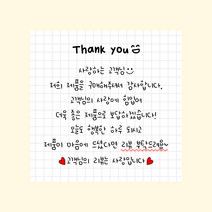 Thank you
사랑하는 고객님
저희 제품을 구매해주셔서 감사합니다.
고객님의 사랑에 힘입어
더욱 좋은 제품으로 보답하겠습니다!
오늘도 행복한 하루 되시고
제품이 마음에 드셨다면 리뷰 부탁드려요~
고객님의 리뷰는 사랑입니다